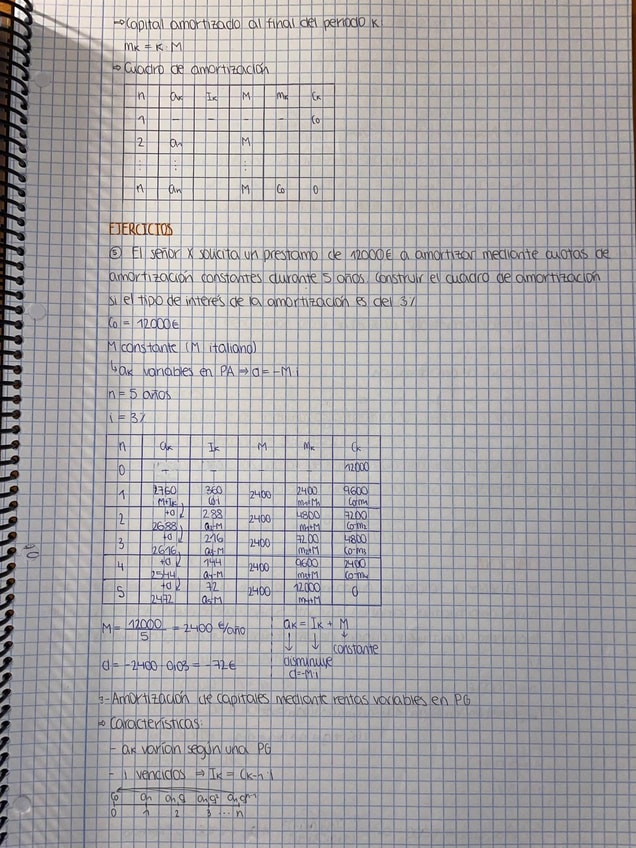 → Capital amortizado al final del periodo K
mk = K · M
→ Cuadro de amortización
n ak Ik M mk Ck
1 - - - - Co
2 an M
⋮ ⋮
n an M Co 0
EJERCICIOS
⑤ El señor X solicita un prestamo de 12000€ a amortizar mediante cuotas de
amortización constantes durante 5 años. Construir el cuadro de amortización
si el tipo de interés de la amortización es del 3%
Co = 12000€
M constante (M italiano)
↳ ak variables en PA → d = -M·i
n = 5 años
i = 3%
n ak Ik M Mk Ck
0 - - - - 12000
1 2760 360 2400 2400 9600
M+Ik Co·i Co-m1
2 +d 288 2400 4800 7200
2688 a2-M m1+M Co-m2
3 +d 216 2400 7200 4800
2616 a3-M m2+M Co-m3
4 +d 144 2400 9600 2400
2544 a4-M m3+M Co-m4
5 +d 72 2400 12000 0
2472 a5-M m4+M
M = 12000/5 = 2400 €/año
d = -2400·0,03 = -72€
ak = Ik + M
↓ ↓ ↓
constante
disminuye
d=-M·i
3- Amortización de capitales mediante rentas variables en PG
→ Características:
- ak varían según una PG
- i vencidos → Ik = Ck-1·i
Co a1 a1·q a1·q² a1·qⁿ⁻¹
0 1 2 3 ... n
10